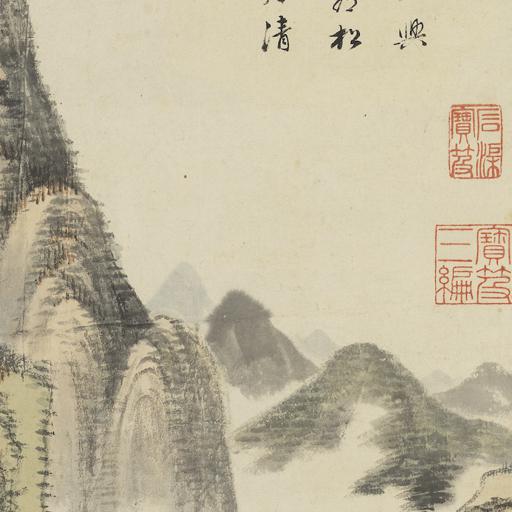 興
松
清
石渠
寶笈
寶笈
三編